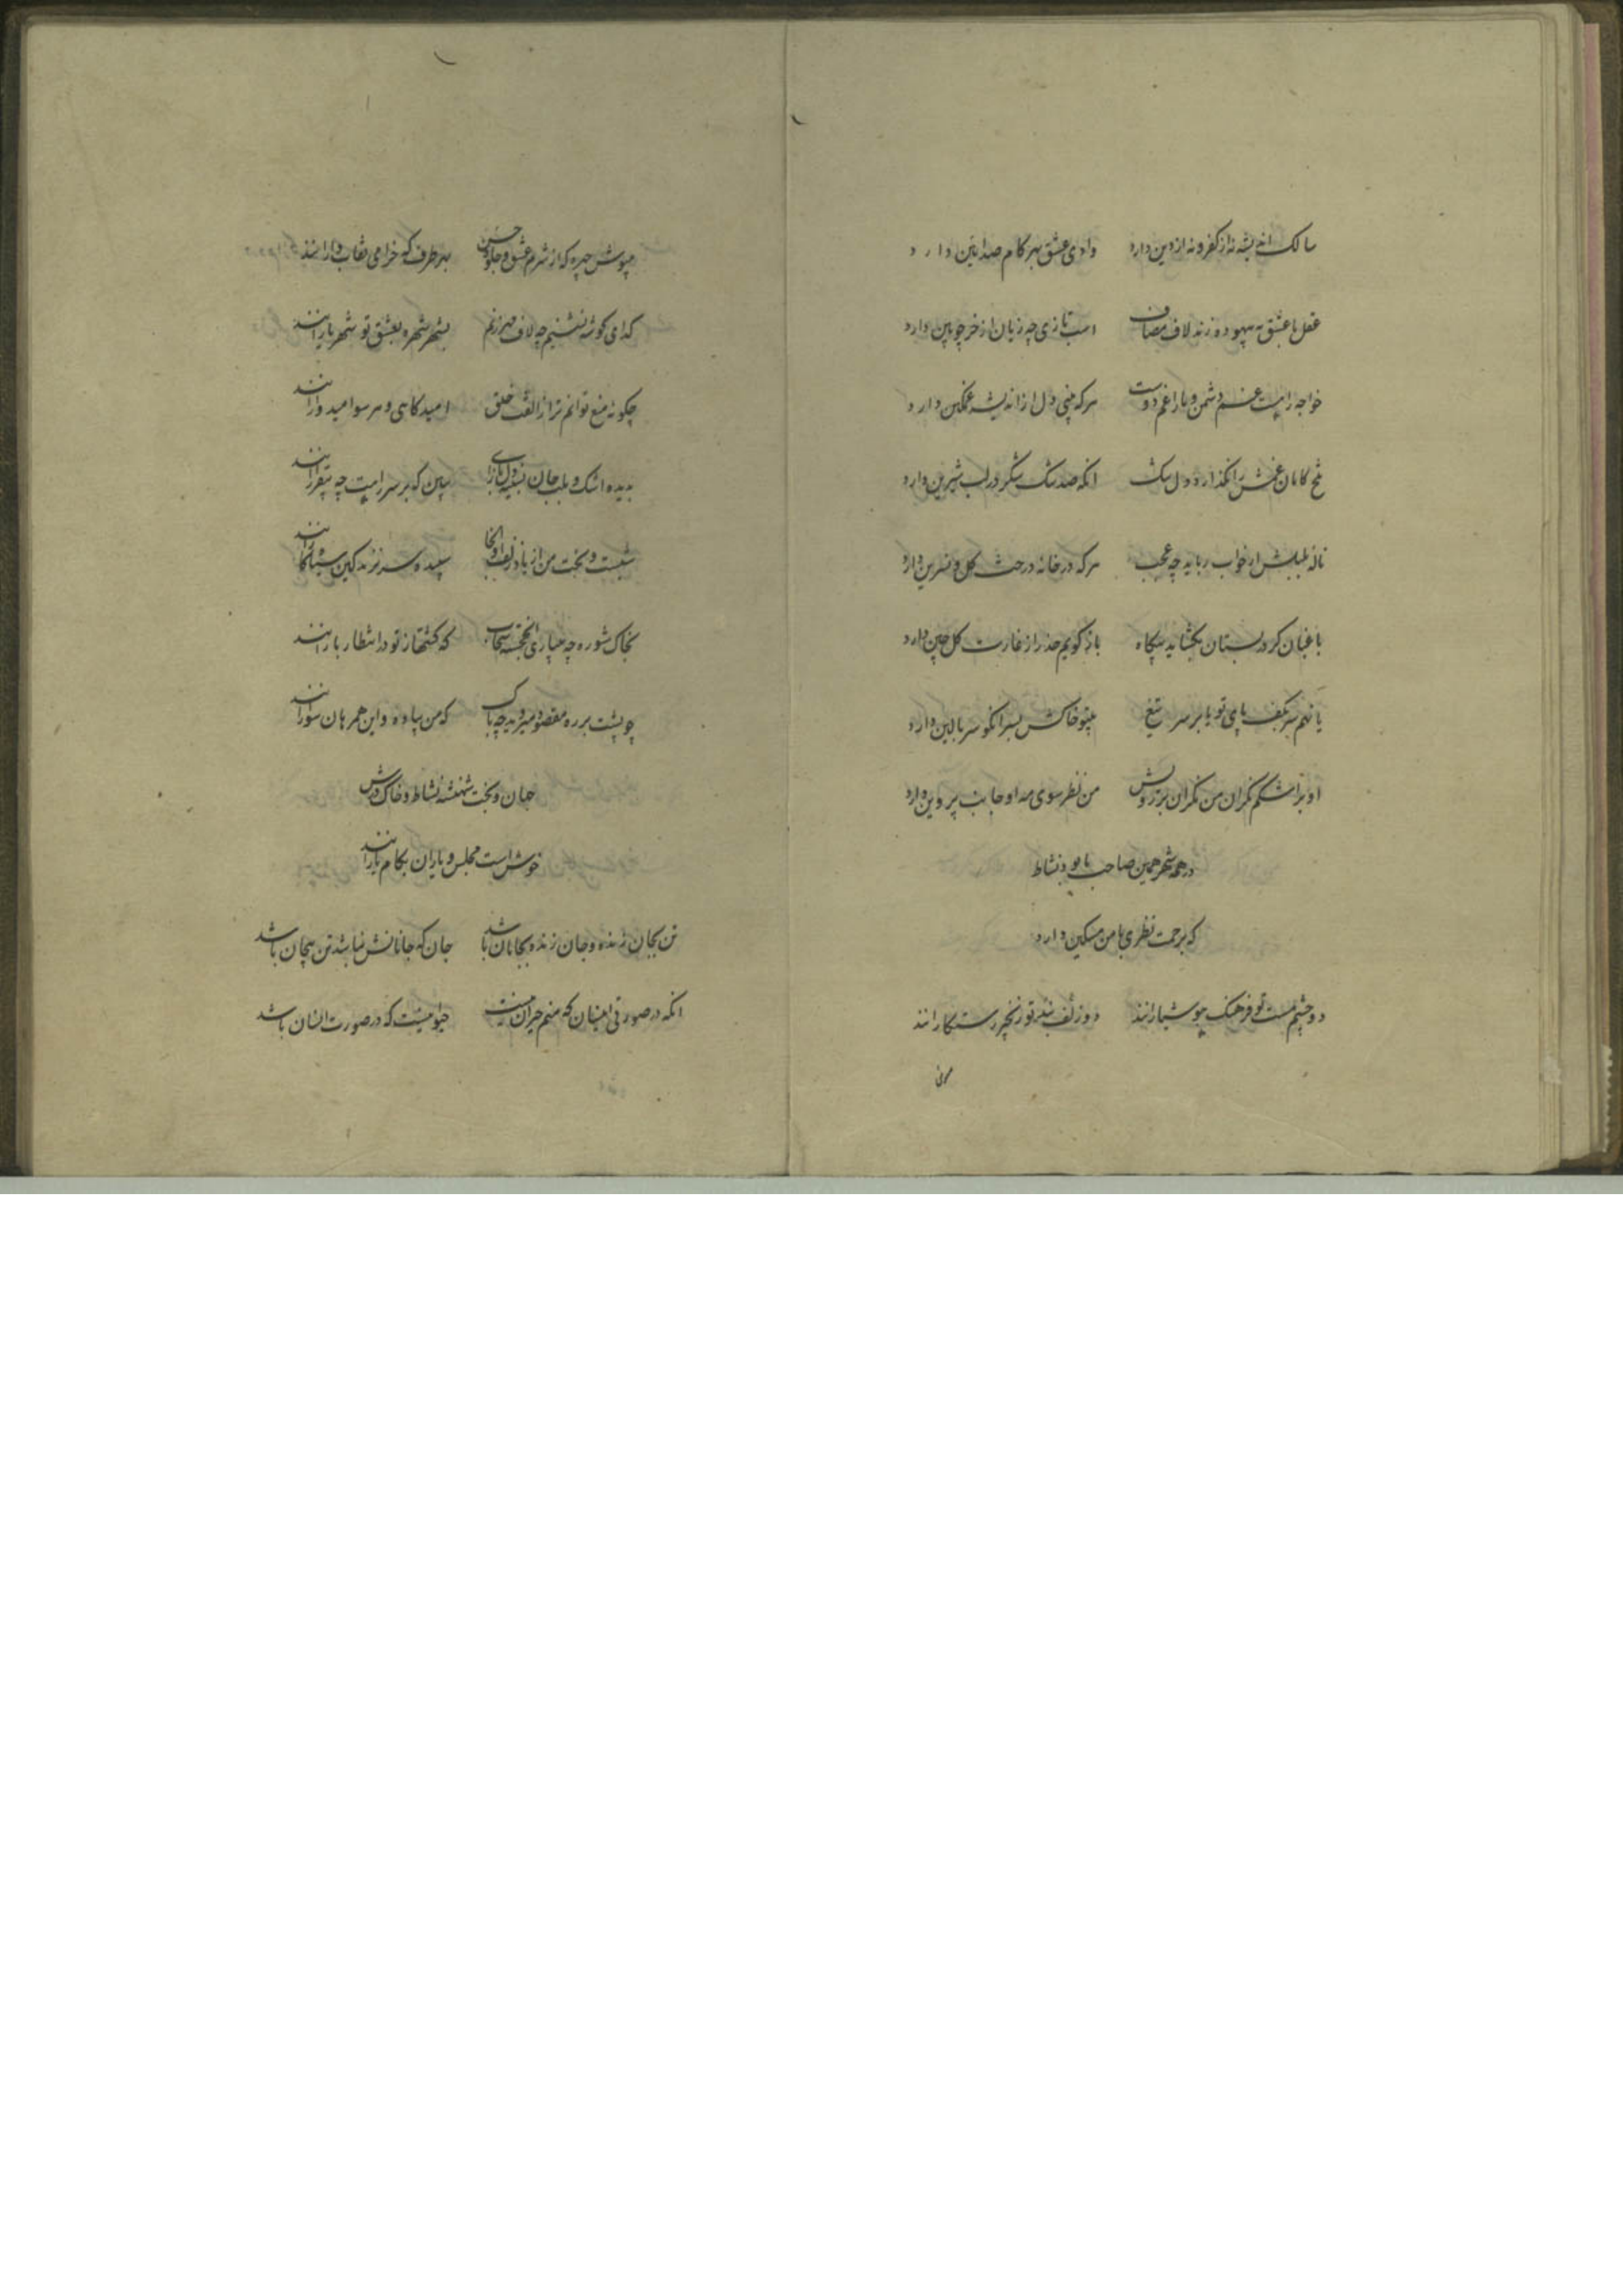 سالک اندیشه نه از کفر و نه از دین دارد وادی عشق بهر کام صد آیین دارد
عقل با عشق به بیهوده زند لاف مصاف اسب تازی چه زیان از خر چوبین دارد
خواجه را نیست غم دشمن و ما را غم دوست هر که بینی دل از اندیشه غمگین دارد
تلخ کامان غمش را نگذارد دل تنگ آنکه صد تنگ شکر در لب شیرین دارد
ناله بلبلش از خواب رباید چه عجب هر که در خانه درخت گل و نسرین دارد
باغبان گر در بستان بگشاید بیگاه باز گویم حذر از غارت گل چین دارد
یا نهم سر بکف پای تو یا بر سر تیغ بیتو خاکش بسر آنکو سر بالین دارد
او بر اشکم نگران من نگران بر رویش من نظر سوی مه او جانب پروین دارد
در همه شهر همین صاحب ما بود نشاط
که برحمت نظری با من مسکین دارد
دو چشم مست تو فرهنگ هوشیارانند دو زلف بند تو زنجیر رستگارانند
مپوش چهره که از شرم عشق و جلوه حسن بهر طرف که خرامی نقاب دارانند
گدای گوشه نشینیم چه لاف مهر زنم بشهر شهره بعشق تو شهریارانند
چگونه منع توانم ترا ز الفت خلق امید گاهی و هر سو امیدوارانند
بدیده اشک و بلب جان بسینه دل بازآی ببین که بر سر راهت چه بیقرارانند
شبست و بخت من از یاد زلف او سپیده سر نزند کاین سیاهکارانند
بخاک شوره چه میباری ای خجسته سحاب که کشتها ز تو در انتظار بارانند
چو پشت بر ره مقصود میروید چه باک که من پیاده و این همرهان سوارانند
جهان و بخت شهنشه نشاط و خاک درش
خوش است مجلس و یاران بکام یارانند
تن بجان زنده و جان زنده بجانان باشد جان که جانانش نباشد تن بیجان باشد
آنکه در صورتی اینسان که منم حیران نیست حیوانیست که در صورت انسان باشد